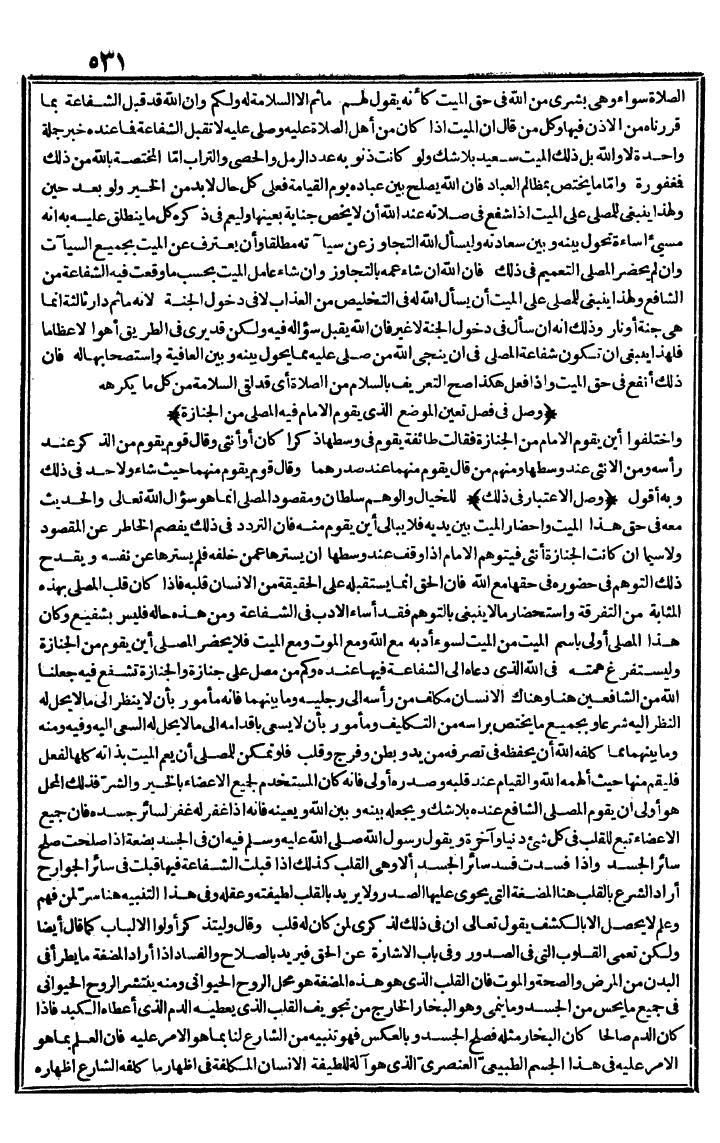 ٥٣١
الصلاة سواء وهى بشرى من الله فى حق الميت كأنه يقول لهم مائم الا السلامة له ولكم وان الله قد قبل الشفاعة بما
قررناه من الاذن فيها وكل من قال ان الميت اذا كان من أهل الصلاة عليه وصلى عليه لا تقبل الشفاعة فما عنده خبر جملة
واحدة لا والله بل ذلك الميت سعيد بلا شك ولو كانت ذنو به عدد الرمل والحصى والتراب امّا المختصة بالله من ذلك
فغفورة وامّا ما يختص بمظالم العباد فان الله يصلح بين عباده يوم القيامة فعلى كل حال لا بد من الخير ولو بعد حين
ولهذا ينبغى للمصلى على الميت اذا شفع فى صلاته عند الله أن لا يخص جناية بعينها وليعم فى ذكره كل ما ينطلق عليه به انه
مسىء اساءة تحول بينه و بين سعادته وليسأل الله التجاوز عن سيا ته مطلقا وأن يعترف عن الميت بجميع السيآت
وان لم يحضر المصلى التعميم فى ذلك فان الله ان شاء عمه بالتجاوز وان شاء عامل الميت بحسب ما وقعت فيه الشفاعة من
الشافع ولهذا ينبغى للمصلى على الميت أن يسأل الله له فى التخليص من العذاب لا فى دخول الجنة لانه ما ثم دار ثالثة انما
هى جنة أو نار وذلك انه ان سأل فى دخول الجنة لا غير فان الله يقبل سؤاله فيه ولكن قد يرى فى الطريق أهوالا عظاما
فلهذا ينبغى ان تكون شفاعة المصلى فى ان ينجى الله من صلى عليه مما يحول بينه و بين العافية واستصحابها له فان
ذلك أنفع فى حق الميت واذا فعل هكذا صح التعريف بالسلام من الصلاة أى قد لقى السلامة من كل ما يكرهه
﴿وصل فى فصل تعين الموضع الذى يقوم الامام فيه المصلى من الجنازة﴾
واختلفوا أين يقوم الامام من الجنازة فقالت طائفة يقوم فى وسطها ذكرا كان أو أنثى وقال قوم يقوم من الذكر عند
رأسه ومن الانثى عند وسطها ومنهم من قال يقوم منهما عند صدرهما وقال قوم يقوم منهما حيث شاء ولا حد فى ذلك
و به أقول ﴿وصل الاعتبار فى ذلك﴾ للخيال والوهم سلطان ومقصود المصلى انما هو سؤال الله تعالى والحديث
معه فى حق هذا الميت واحضار الميت بين يديه فلا يبالى أين يقوم منه فان التردد فى ذلك يفصم الخاطر عن المقصود
ولاسيما ان كانت الجنازة أنثى فيتوهم الامام اذا وقف عند وسطها ان يسترها عمن خلفه فلم يسترها عن نفسه و يقدح
ذلك التوهم فى حضوره فى حقها مع الله فان الحق انما يستقبله على الحقيقة من الانسان قلبه فاذا كان قلب المصلى بهذه
المثابة من التفرقة واستحضار ما لا ينبغى بالتوهم فقد أساء الادب فى الشفاعة ومن هذه حاله فليس بشفيع وكان
هذا المصلى أولى باسم الميت من الميت لسوء أدبه مع الله ومع الموت ومع الميت فلا يحضر المصلى أين يقوم من الجنازة
وليستفرغ همته فى الله الذى دعاه الى الشفاعة فيها عنده وكم من مصل على جنازة والجنازة تشفع فيه جعلنا
الله من الشافعين هنا وهناك الانسان مكلف من رأسه الى رجليه وما بينهما فانه مأمور بأن لا ينظر الى ما لا يحل له
النظر اليه شرعا و بجميع ما يختص براسه من التكاليف ومأمور بأن لا يسعى باقدامه الى ما لا يحل له السعى اليه وفيه ومنه
وما بينهما مما كلفه الله أن يحفظه فى تصرفه من يد و بطن وفرج وقلب فلو تمكن للمصلى أن يعم الميت بذاته كلها لفعل
فليقم منها حيث ألهمه الله والقيام عند قلبه وصدره أولى فانه كان المستخدم لجميع الاعضاء بالخير والشر فذلك المحل
هو أولى أن يقوم المصلى الشافع عنده بلا شك و يجعله بينه و بين الله و يعينه فانه اذا غفر له غفر لسائر جسده فان جميع
الاعضاء تبع للقلب فى كل شىء دنيا وآخرة و يقول رسول الله صلى الله عليه وسلم فيه ان فى الجسد بضعة اذا صلحت صلح
سائر الجسد واذا فسدت فسد سائر الجسد ألا وهى القلب كذلك اذا قبلت الشفاعة فيها قبلت فى سائر الجوارح
أراد الشرع بالقلب هنا المضغة التى يحوى عليها الصدر ولا يريد بالقلب لطيفته وعقله وفى هذا التنبيه هنا سرّ لمن فهم
وعلم لا يحصل الا بالكشف يقول تعالى ان فى ذلك لذكرى لمن كان له قلب وقال وليتذكر أولوا الالباب كما قال أيضا
ولكن تعمى القلوب التى فى الصدور وفى باب الاشارة عن الحق فيريد بالصلاح والفساد اذا أراد المضغة ما يطرأ فى
البدن من المرض والصحة والموت فان القلب الذى هو هذه المضغة هو محل الروح الحيوانى ومنه ينتشر الروح الحيوانى
فى جميع ما يحس من الجسد وما ينمى وهو البخار الخارج من تجويف القلب الذى يعطيه الدم الذى أعطاه الكبد فاذا
كان الدم صالحا كان البخار مثله فصلح الجسد و بالعكس فهو تنبيه من الشارع لنا بما هو الامر عليه فان العلم بما هو
الامر عليه فى هذا الجسم الطبيعىّ العنصرىّ الذى هو آلة للطيفة الانسان المكلفة فى اظهار ما كلفه الشارع اظهاره